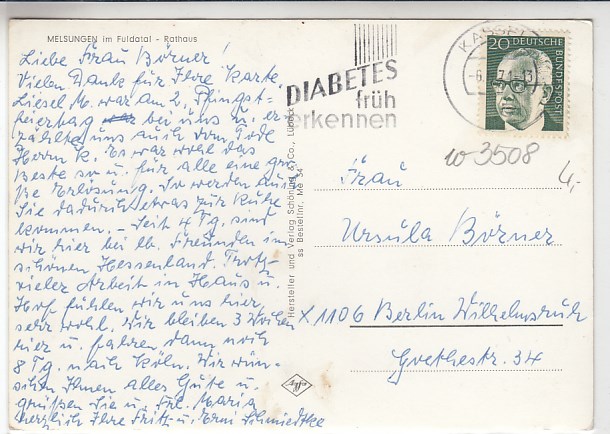 MELSUNGEN im Fuldatal - Rathaus
Liebe Frau Börner!
Vielen Dank für Ihre Karte.
Liesel M. war am 2. Pfingst-
feiertag bei uns u. er-
zählte uns auch vom Tode
Herrn K. Es war wohl das
Beste so u. für alle eine gro-
ße Erlösung. So werden auch
Sie dadurch etwas zur Ruhe
kommen. - Seit 4 Tg. sind
wir hier bei lb. Freunden im
schönen Hessenland. Trotz
vieler Arbeit in Haus u.
Hof fühlen wir uns hier
sehr wohl. Wir bleiben 3 Wochen
hier u. fahren dann noch
8 Tg. nach Köln. Wir wün-
schen Ihnen alles Gute u.
grüßen Sie u. Frl. Maria
herzlich Ihre Fritz u. Erni Schmiedtke
Hersteller und Verlag Schöning & Co., Lübeck
ss Bestellnr. Me 34
DIABETES
früh
erkennen
KASSEL
20 DEUTSCHE
BUNDESPOST
w 3508
4,-
Frau
Ursula Börner
X 1106 Berlin Wilhelmsruh
Goethestr. 34